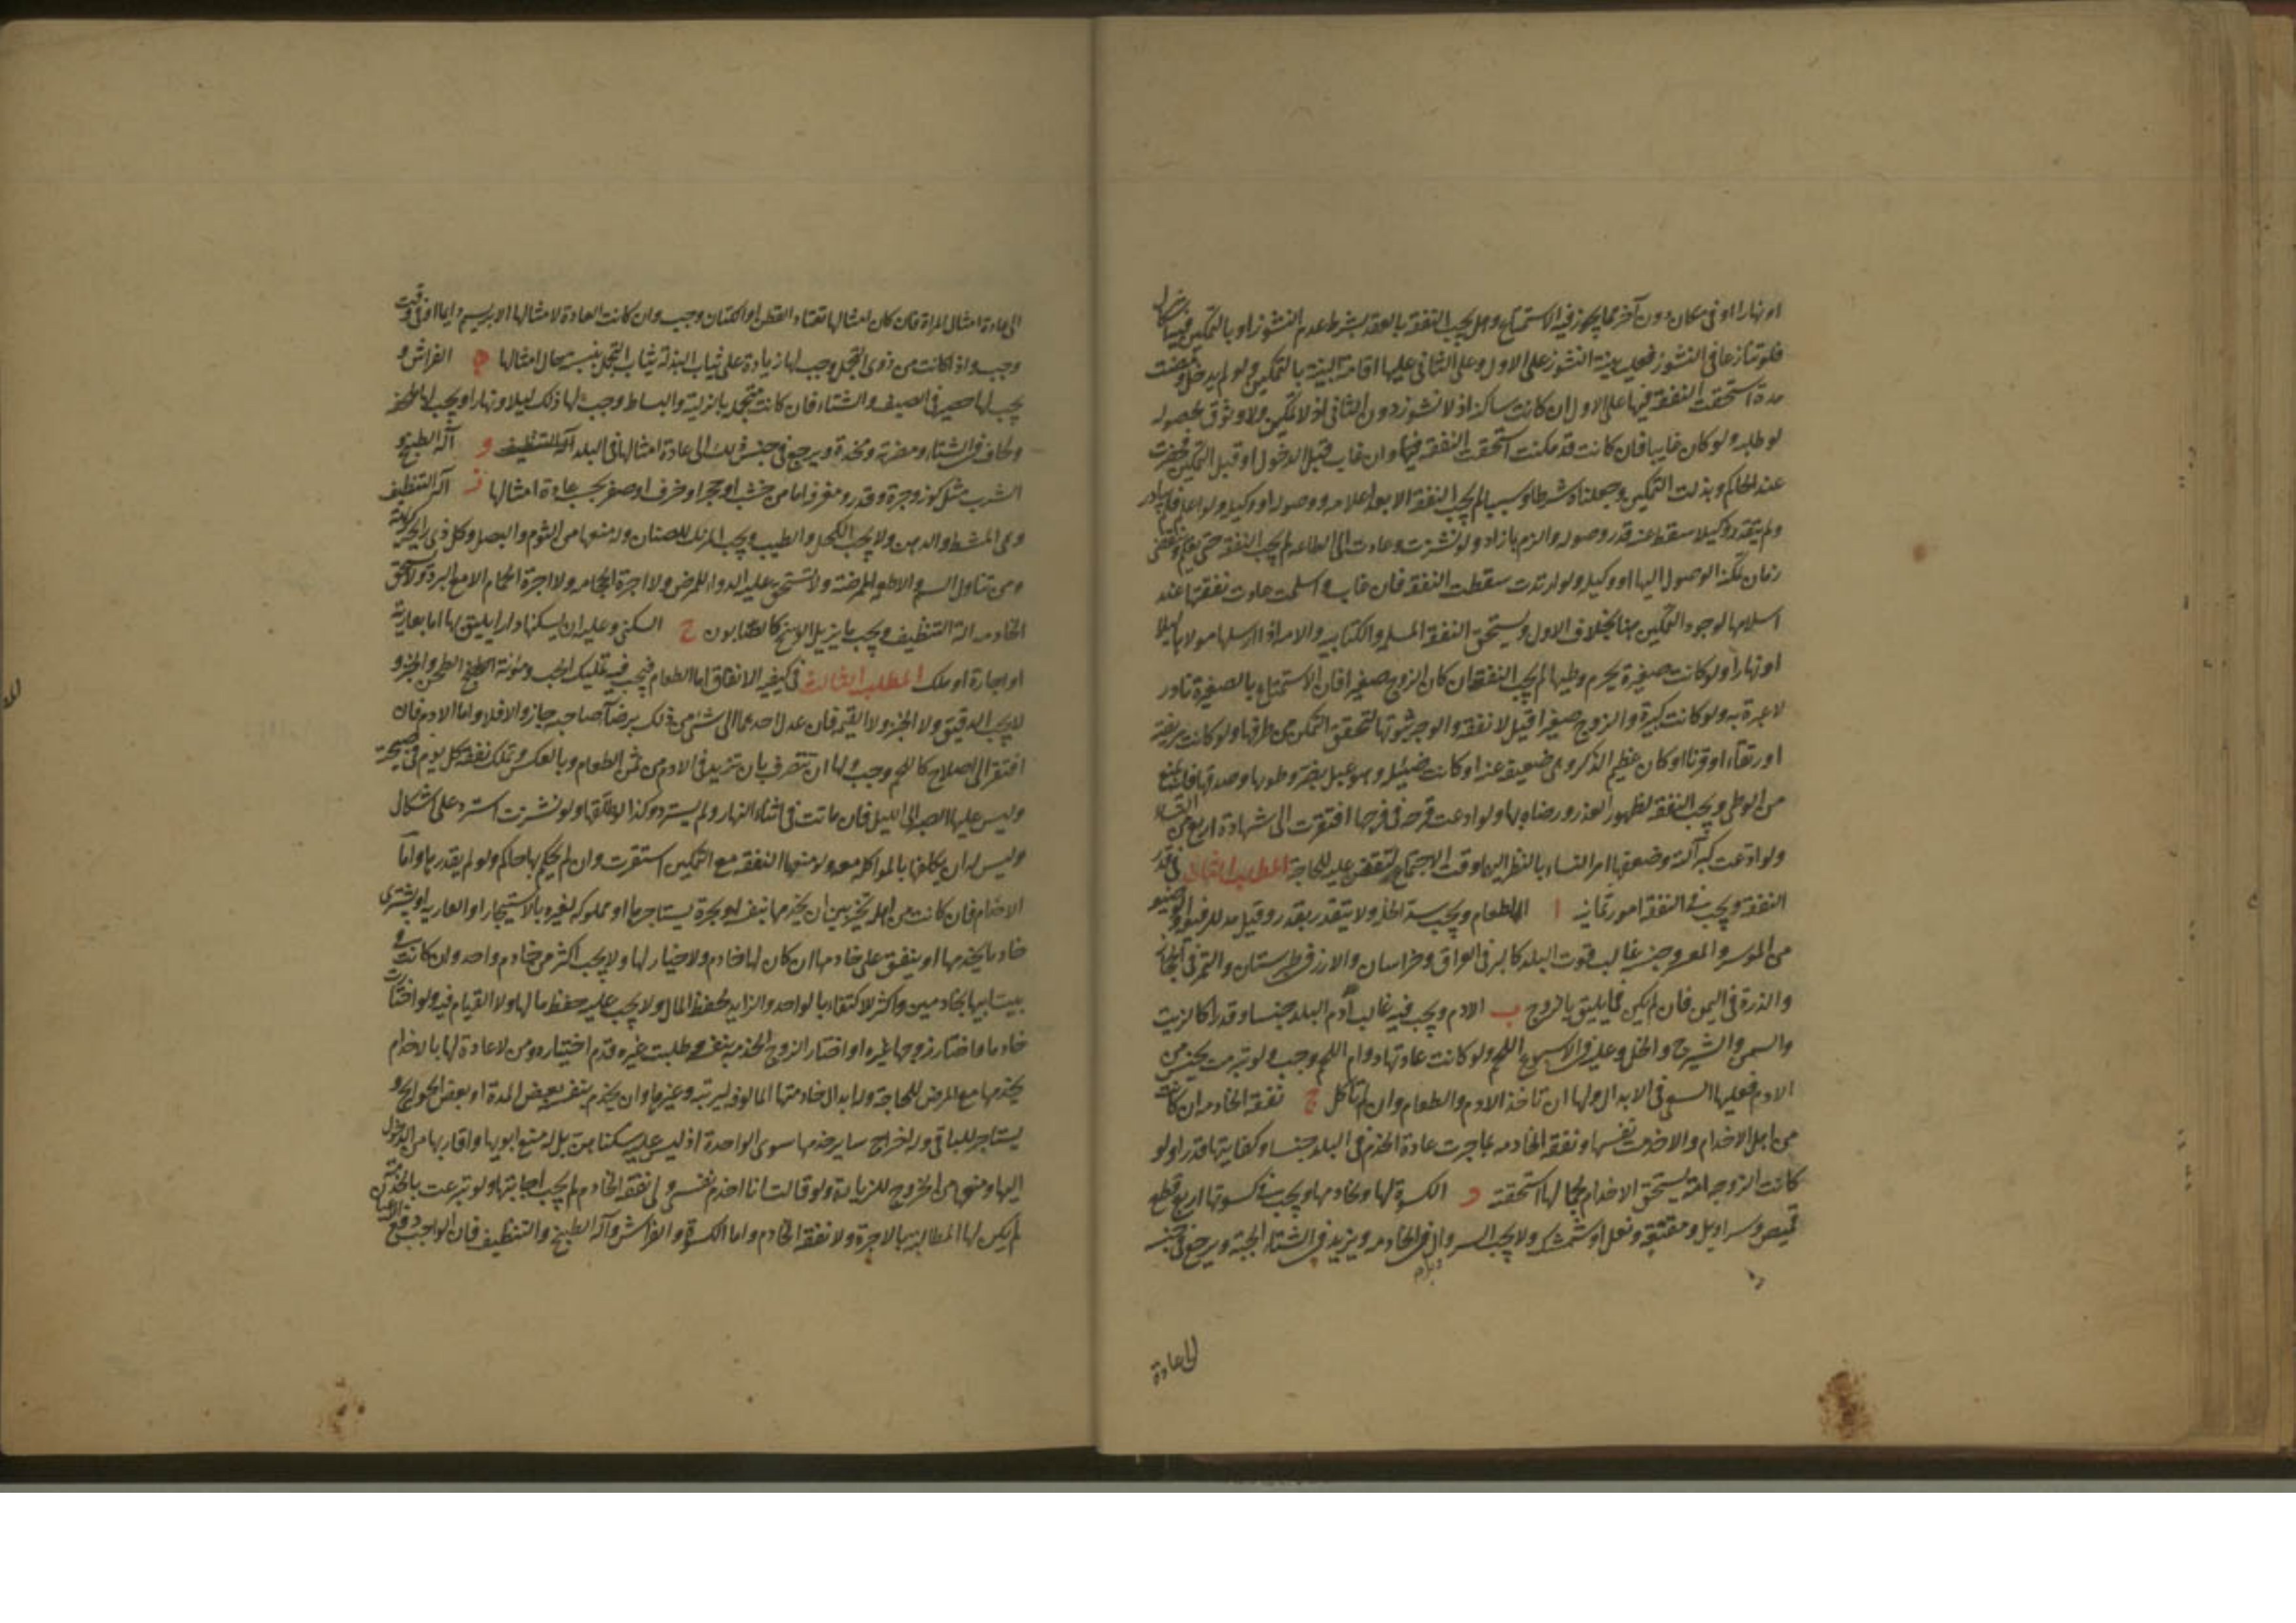 او نهارا او فى مكان دون آخر مما يجوز فيه الاستمتاع وهل يجب النفقة بالعقد بشرط عدم النشوز او بالتمكين فيه اشكال
فلو تنازعا فى النشوز فعليه بينة النشوز على الاول وعلى الثانى عليها اقامة البينة بالتمكين ولو لم يدخل ومضت
مدة استحقت النفقة فيها على الاول ان كانت ساكنة اذ لا نشوز دون الثانى اذ لا تمكين ولا وثوق بحصوله
لو طلبه ولو كان غايبا فان كانت قد مكنت استحقت النفقة فيها وان غاب قبل الدخول او قبل التمكين فحضرت
عند الحاكم وبذلت التمكين وجعلناه شرطا او سببا لم يجب النفقة الا بعد اعلامه ووصوله او وكيله ولو اعلم فلم يبادر
ولم ينفذ وكيلا سقط عنه قدر وصوله والزم بما زاد ولو نشزت وعادت الى الطاعة لم يجب النفقة حتى يعلم وينقضى
زمان يمكنه الوصول اليها او وكيله ولو ارتدت سقطت النفقة فان غاب واسلمت عادت نفقتها عند
اسلامها لوجود التمكين هنا بخلاف الاول ويستحق النفقة المسلمة والكتابية والامة اذا ارسلها مولاها ليلا
او نهارا ولو كانت صغيرة يحرم وطيها لم يجب النفقة وان كان الزوج صغيرا فان الاستمتاع بالصغيرة نادر
لا عبرة به ولو كانت كبيرة والزوج صغيرا قيل لا نفقة والوجه ثبوتها لتحقق التمكين من طرفها ولو كانت مريضة
او رتقاء او قرنا او كان عظيم الذكر وهى ضعيفة عنه او كانت ضئيلة وهو عبل يضره وطوها وصدقها فله المنع
من الوطى ويجب النفقة لظهور العذر ورضاه بها ولو ادعت قرحة فى فرجها افتقرت الى شهادة اربع من النساء
ولو ادعت كبر آلته وضعفها امر النساء بالنظر اليها وقت الاجتماع ليقفن عليه للحاجة المطلب الثانى فى قدر
النفقة ويجب فى النفقة امور ثمانية ا الطعام ويجب سد الخلة ولا يتقدر بقدر وقيل مد للرفيع والوضيع
من الموسر والمعسر وجنسه غالب قوت البلد كالبر فى العراق وخراسان والارز فى طبرستان والتمر فى الحجاز
والذرة فى اليمن فان لم يكن فما يليق بالزوج ب الادم ويجب فيه غالب ادم البلد جنسا وقدرا كالزيت
والسمن والشيرج والخل وعليه فى الاسبوع اللحم ولو كانت عادتها دوام اللحم وجب ولو تبرمت بجنس من
الادم فعليها السعى فى الابدال ولها ان تاخذ الادم والطعام وان لم تاكل ج نفقة الخادمة ان كانت
من اهل الاخدام والا خدمت نفسها ونفقة الخادمة بما جرت عادة الخدم فى البلد جنسا وكفايتها قدرا ولو
كانت الزوجة امة يستحق الاخدام لجمالها استحقته د الكسوة لها ولخادمها ويجب فى كسوتها اربع قطع
قميص وسراويل ومقنعة ونعل او شمشك ولا يجب السروال فى الخادمة ويزيد فى الشتاء الجبة ويرجع فى جنسه
الى عادة
الى عادة امثال المراة فان كان امثالها تعتاد القطن او الكتان وجب وان كانت العادة لامثالها الابريسم دايما او فى وقت
وجب واذا كانت من ذوى التجمل وجب لها زيادة على ثياب البذلة ثياب التجمل بنسبة حال امثالها ه الفراش و
يجب لها حصير فى الصيف والشتاء فان كانت متجملة بالزلية والبساط وجب لها ذلك ليلا ونهارا ويجب لها
ولحاف فى الشتاء ومضربة ومخدة ويرجع فى جنس ذلك الى عادة امثالها فى البلد و آلة الطبخ و
الشرب مثل كوز وجرة وقدر ومغرفة اما من خشب او حجر او خزف او صفر بحسب عادة امثالها ز آلة التنظيف
وهى المشط والدهن ولا يجب الكحل والطيب ويجب المزيل للصنان وله منعها من الثوم والبصل وكل ذى رايحة كريهة
ومن تناول السم والاطعمة الممرضة ولا تستحق عليه الدواء للمرض ولا اجرة الحجامة ولا اجرة الحمام الا مع البرد ولا تستحق
الخادمة آلة التنظيف ويجب ما يزيل الوسخ كالصابون ح السكنى وعليه ان يسكنها دارا يليق بها اما بعارية
او اجارة او ملك المطلب الثالث فى كيفية الانفاق اما الطعام فيجب فيه تمليك الحب ومؤنة الطحن والخبز و
لا يجب الدقيق ولا الخبز ولا القيمة فان عدل احدهما الى شئ من ذلك برضا صاحبه جاز والا فلا واما الادم فان
افتقر الى اصلاح كاللحم وجب ولها ان تتصرف بان تزيد فى الادم من ثمن الطعام وبالعكس وتملك نفقة كل يوم فى صبيحته
وليس عليها الصبر الى الليل فان ماتت فى اثناء النهار ولم يسترد وكذا لو طلقها ولو نشزت استرد على اشكال
وليس له ان يكلفها بالمواكلة معه ولا منعها النفقة مع التمكين استقرت وان لم يحكم بها حاكم ولو لم يقدرها واما
الاخدام فان كانت من اهله تخير بين ان يخدمها بنفسه او بحرة يستاجرها او مملوكة لغيره بالاستيجار او العارية او يشترى
خادما يخدمها او ينفق على خادمها ان كان لها خادم ولا خيار لها ولا يجب اكثر من خادم واحد وان كانت فى
بيت ابيها بخادمين واكثر لاكتفاء بالواحد والزايد لحفظ المال ولا يجب عليه حفظ مالها ولا القيام فيه ولو اختارت
خادما واختار زوجها غيره او اختار الزوج الخدمة بنفسه وطلبت غيره قدم اختياره ومن لا عادة لها بالاخدام
يخدمها مع المرض للحاجة وله ابدال خادمتها المالوفة لريبة وغيرها وان يخدم بنفسه بعض المدة او بعض الحوايج و
يستاجر للباقى وله اخراج ساير خدمها سوى الواحدة اذ ليس عليه سكناهن بل له منع ابويها واقاربها من الدخول
اليها ومنعها من الخروج للزيارة ولو قالت انا اخدم نفسى ولى نفقة الخادم لم يجب اجابتها ولو تبرعت بالخدمة
لم يكن لها المطالبة بالاجرة ولا نفقة الخادم واما الكسوة والفراش وآلة الطبخ والتنظيف فان الواجب دفع